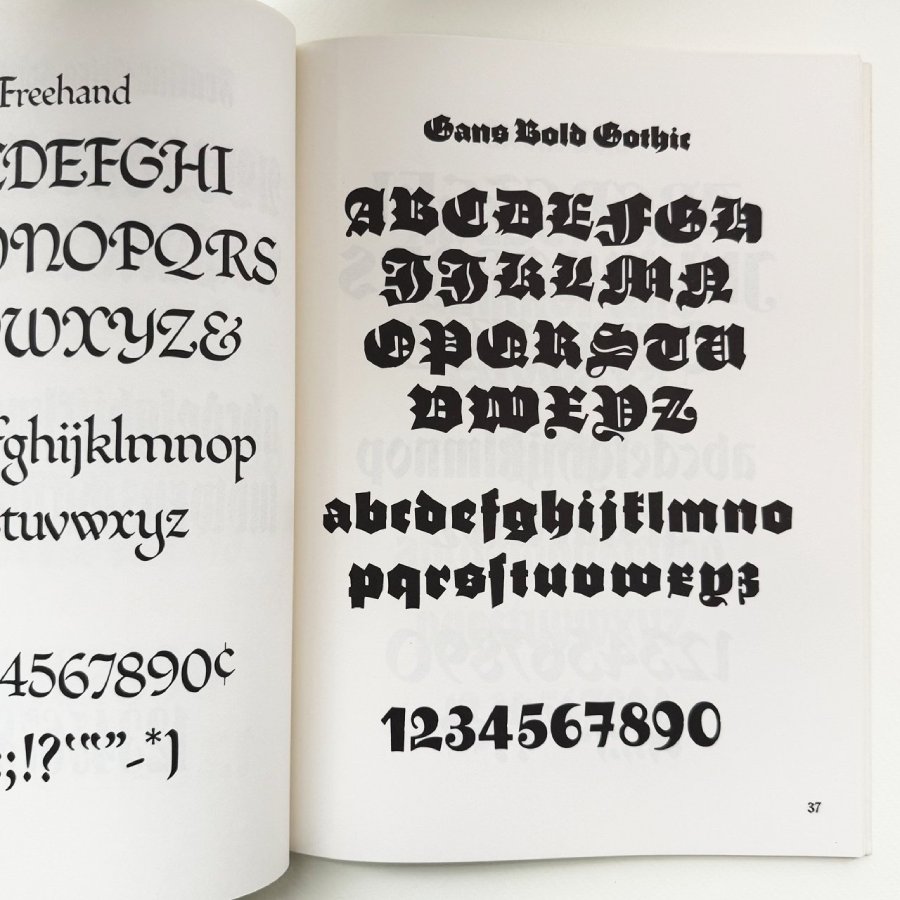 Freehand
CDEFGHI
NOPQRS
WXYZ&
fghijklmnop
tuvwxyz
4567890¢
:;!?‘“”-*)
Gans Bold Gothic
ABCDEFGH
IJKLMN
OPQRSTU
VWXYZ
abcdefghijklmno
pqrsſtuvwxyz
1234567890
37